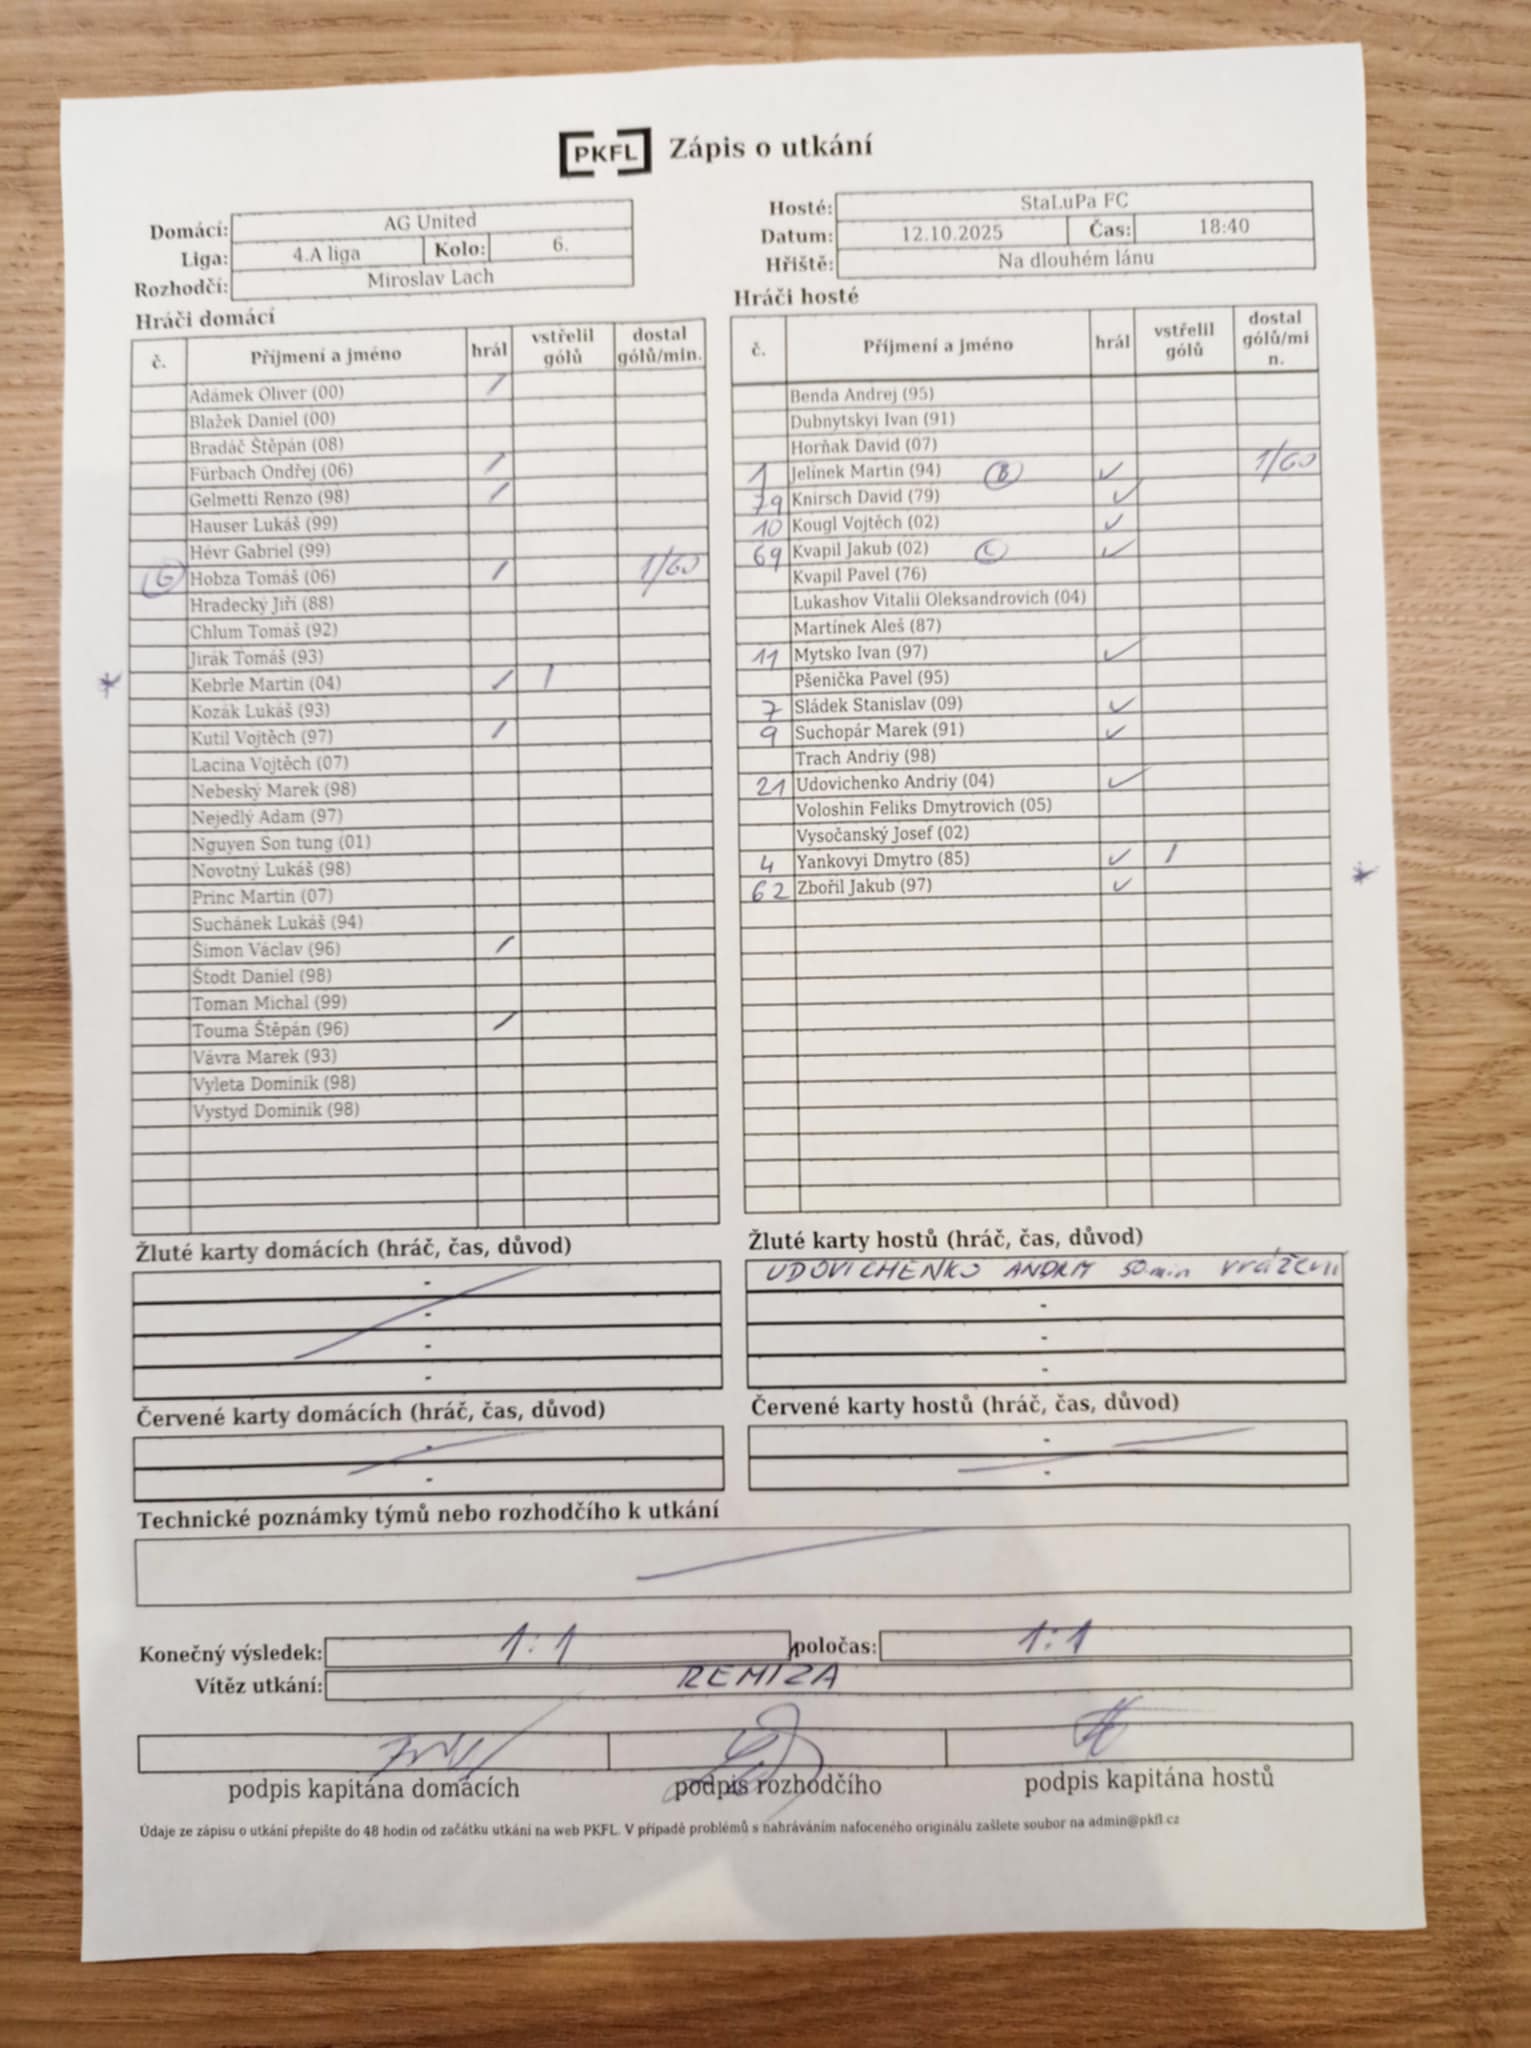 PKFL Zápis o utkání
Domácí: AG United
Liga: 4.A liga Kolo: 6.
Rozhodčí: Miroslav Lach
Hosté: StaLuPa FC
Datum: 12.10.2025 Čas: 18:40
Hřiště: Na dlouhém lánu
Hráči domácí
č. Příjmení a jméno hrál vstřelil gólů dostal gólů/min.
Adámek Oliver (00) /
Blažek Daniel (00)
Bradáč Štěpán (08)
Fürbach Ondřej (06) /
Gelmetti Renzo (98) /
Hauser Lukáš (99)
Hévr Gabriel (99)
Hobza Tomáš (06) / 1/60
Hradecký Jiří (88)
Chlum Tomáš (92)
Jirák Tomáš (93)
* Kebrle Martin (04) / |
Kozák Lukáš (93)
Kutil Vojtěch (97) /
Lacina Vojtěch (07)
Nebeský Marek (98)
Nejedlý Adam (97)
Nguyen Son tung (01)
Novotný Lukáš (98)
Princ Martin (07)
Suchánek Lukáš (94)
Šimon Václav (96) /
Štodt Daniel (98)
Toman Michal (99)
Touma Štěpán (96) /
Vávra Marek (93)
Vyleta Dominik (98)
Vystyd Dominik (98)
Hráči hosté
č. Příjmení a jméno hrál vstřelil gólů dostal gólů/min.
Benda Andrej (95)
Dubnytskyi Ivan (91)
Horňak David (07)
1 Jelínek Martin (94) B ✓ 1/60
79 Knirsch David (79) ✓
10 Kougl Vojtěch (02) ✓
69 Kvapil Jakub (02) C ✓
Kvapil Pavel (76)
Lukashov Vitalii Oleksandrovich (04)
Martínek Aleš (87)
11 Mytsko Ivan (97) ✓
Pšenička Pavel (95)
7 Sládek Stanislav (09) ✓
9 Suchopár Marek (91) ✓
Trach Andriy (98)
21 Udovichenko Andriy (04) ✓
Voloshin Feliks Dmytrovich (05)
Vysočanský Josef (02)
4 Yankovyi Dmytro (85) ✓ /
62 Zbořil Jakub (97) ✓ *
Žluté karty domácích (hráč, čas, důvod)
-
-
-
-
Žluté karty hostů (hráč, čas, důvod)
UDOVICHENKO 50 min vrážení
-
-
-
Červené karty domácích (hráč, čas, důvod)
-
-
Červené karty hostů (hráč, čas, důvod)
-
-
Technické poznámky týmů nebo rozhodčího k utkání
Konečný výsledek: 1:1 poločas: 1:1
Vítěz utkání: REMIZA
podpis kapitána domácích podpis rozhodčího podpis kapitána hostů
Údaje ze zápisu o utkání přepište do 48 hodin od začátku utkání na web PKFL. V případě problémů s nahráváním nafoceného originálu zašlete soubor na admin@pkfl.cz